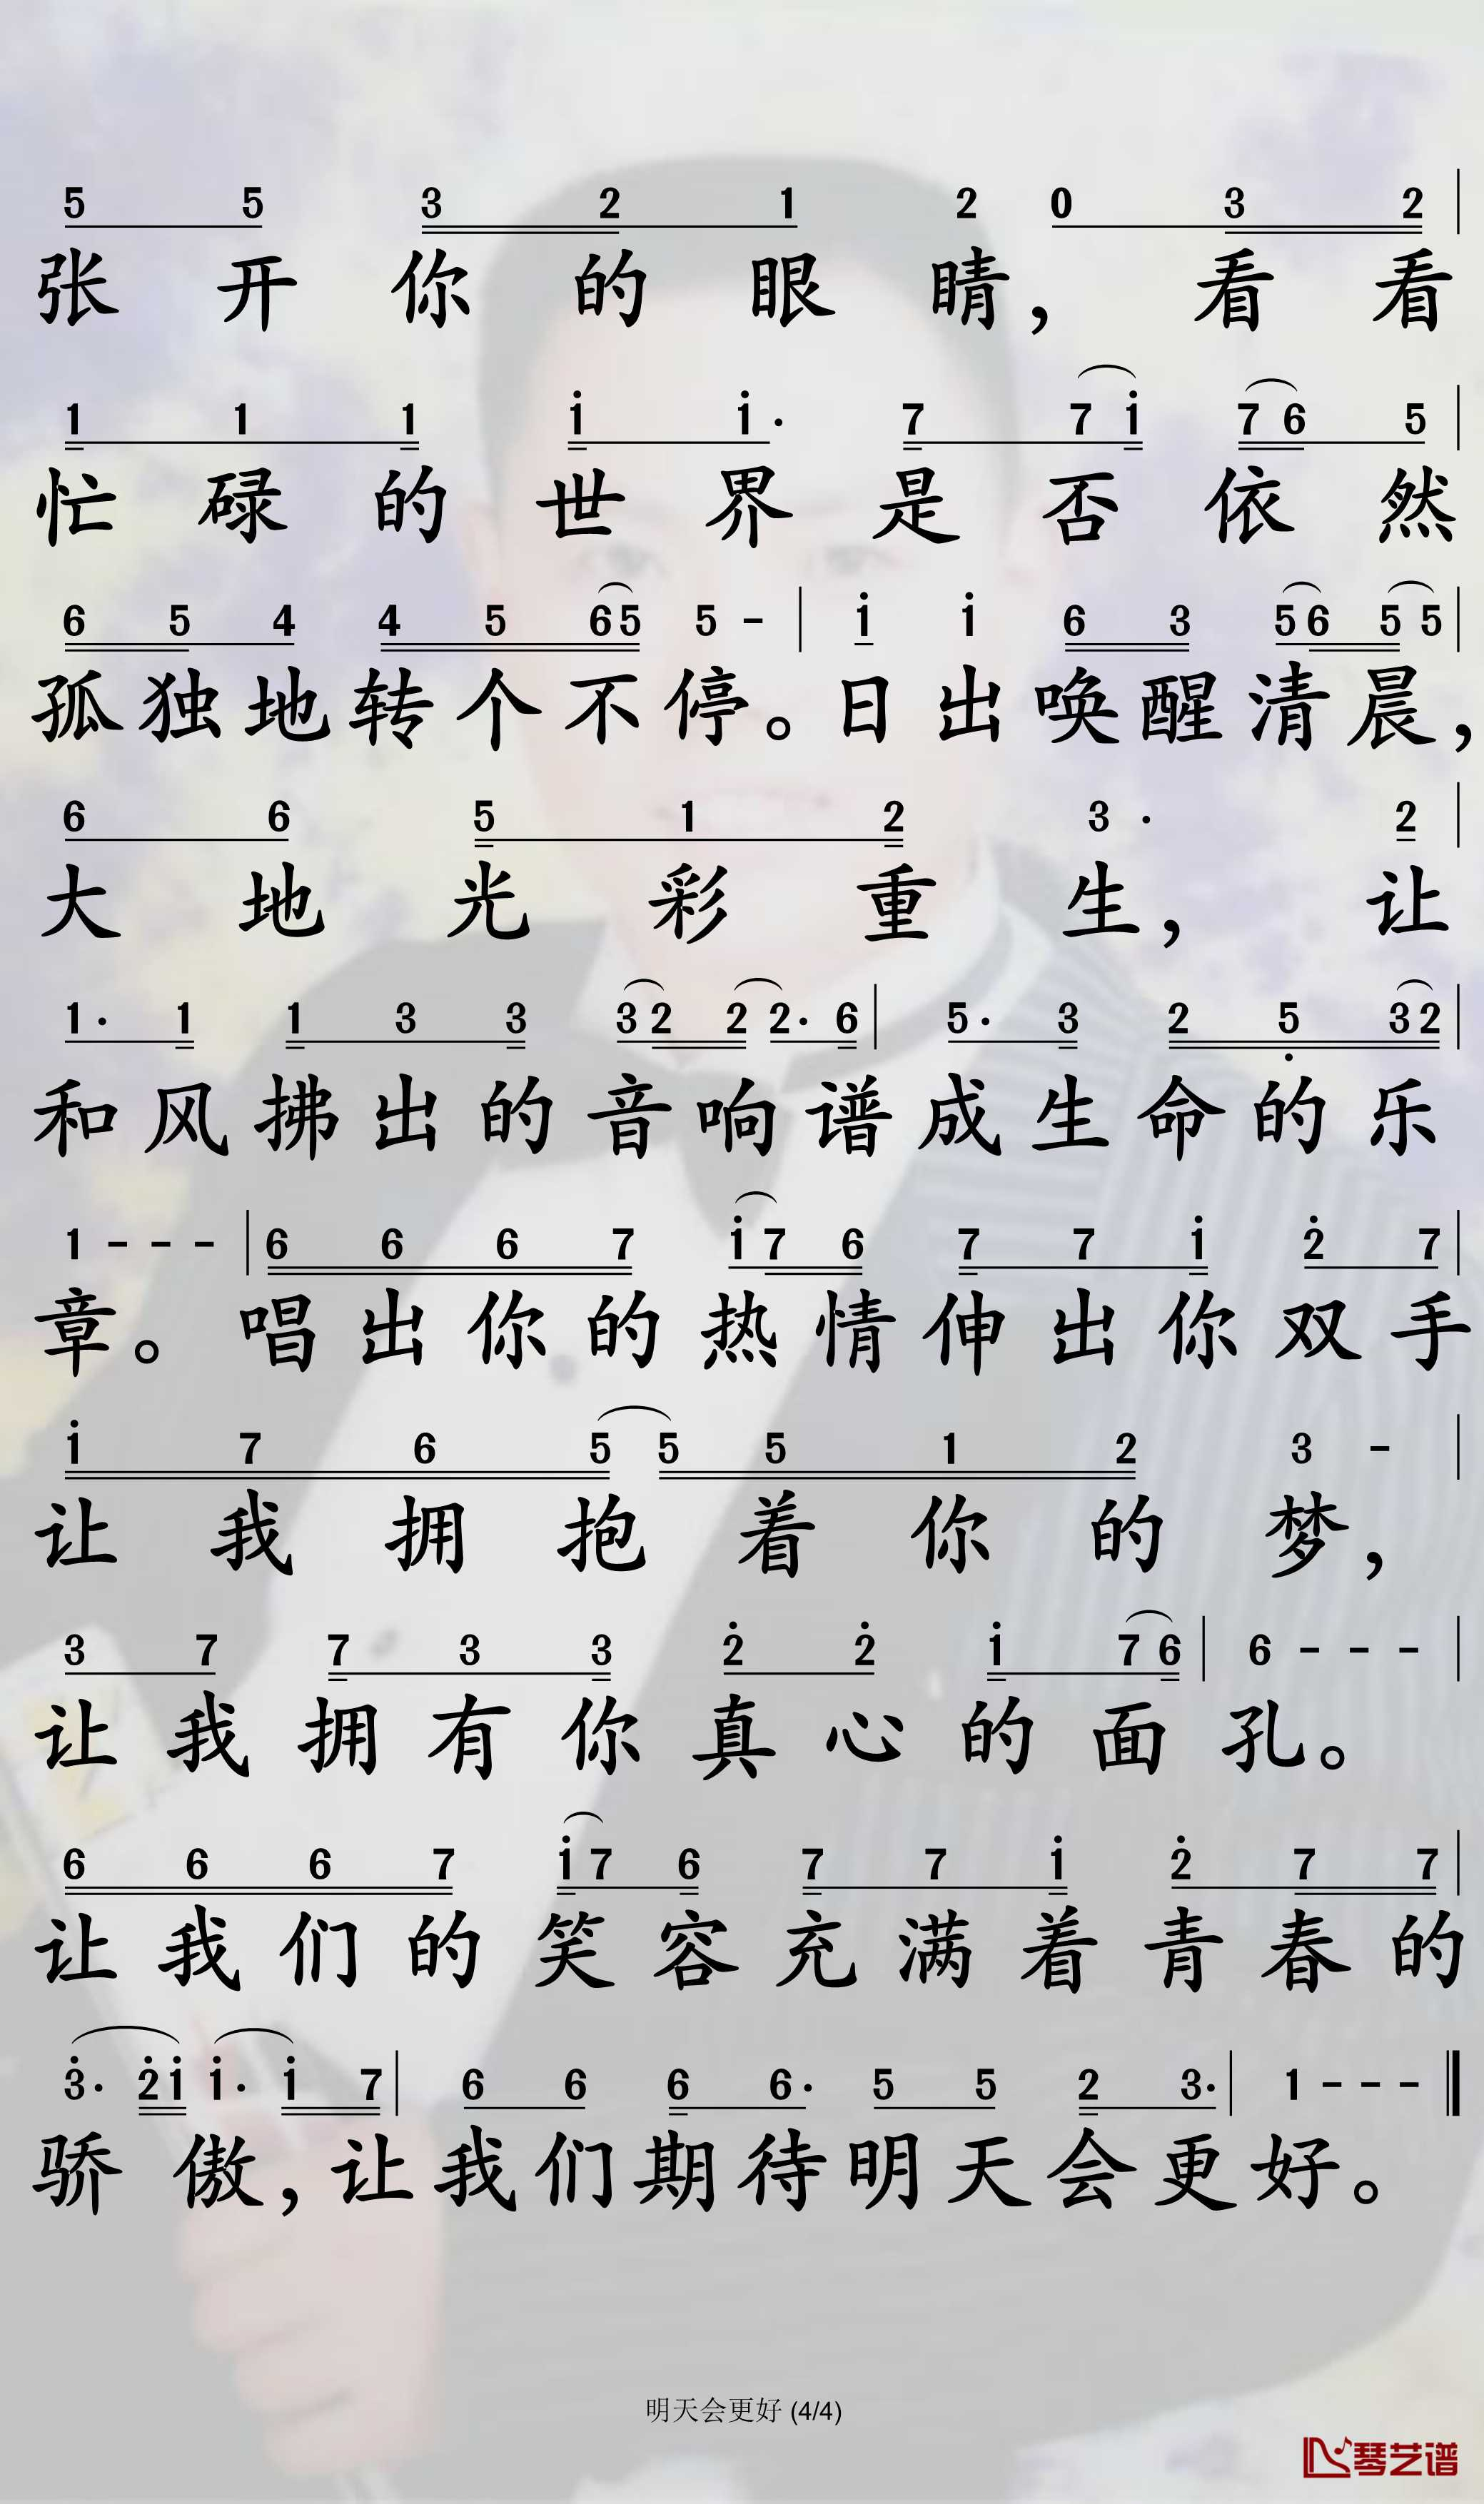 5 5 3 2 1 2 0 3 2 |
张开你的眼睛，看看
1 1 1 i i· 7 7 i 7 6 5 |
忙碌的世界是否依然
6 5 4 4 5 6 5 5 - | i i 6 3 5 6 5 5 |
孤独地转个不停。日出唤醒清晨，
6 6 5 1 2 3 · 2 |
大地光彩重生，让
1· 1 1 3 3 3 2 2 2· 6 | 5· 3 2 5̣ 3 2 |
和风拂出的音响谱成生命的乐
1 - - - | 6 6 6 7 i 7 6 7 7 i 2̇ 7 |
章。唱出你的热情伸出你双手
i 7 6 5 5 5 1 2 3 - |
让我拥抱着你的梦，
3 7 7 3 3 2̇ 2̇ i 7 6 | 6 - - - |
让我拥有你真心的面孔。
6 6 6 7 i 7 6 7 7 i 2̇ 7 7 |
让我们的笑容充满着青春的
3̇· 2̇ i i· i 7 | 6 6 6 6· 5 5 2 3· | 1 - - - ‖
骄傲，让我们期待明天会更好。
明天会更好 (4/4)
琴艺谱